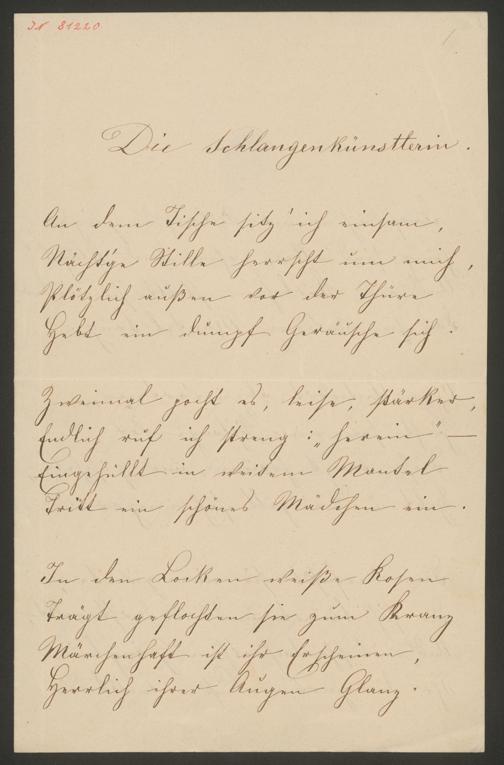 IN 81220
1
Die Schlangenkünstlerin.
An dem Tische sitz' ich einsam,
Nächt'ge Stille herrscht um mich,
Plötzlich außen vor der Thüre
Hebt ein dumpf Geräusche sich.
Zweimal pocht es, leise, stärker,
Endlich ruf ich streng: „herein" —
Eingehüllt in weitem Mantel
Tritt ein schönes Mädchen ein.
In den Locken weiße Rosen
Trägt geflochten sie zum Kranz
Märchenhaft ist ihr Erscheinen,
Herrlich ihrer Augen Glanz.